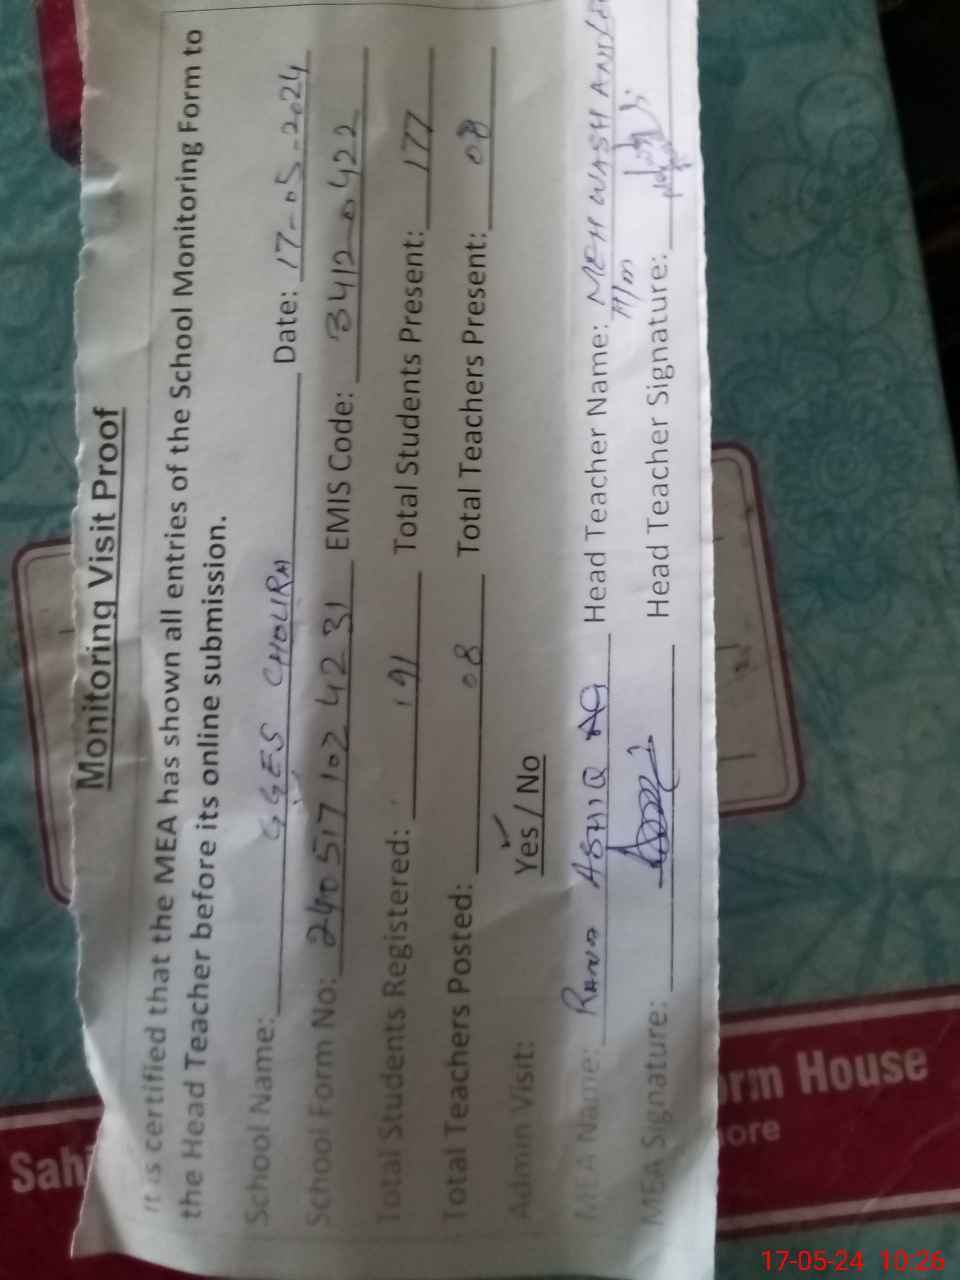 Monitoring Visit Proof
It is certified that the MEA has shown all entries of the School Monitoring Form to
the Head Teacher before its online submission.
School Name: GGES CHOURA Date: 17-05-2024
School Form No: 2405171024231 EMIS Code: 34120422
Total Students Registered: 191 Total Students Present: 177
Total Teachers Posted: 08 Total Teachers Present: 08
Admin Visit: Yes / No
MEA Name: Rana ASHIQ Head Teacher Name: MEH WASH
MEA Signature: Head Teacher Signature:
Sahi
orm House
ore
17-05-24 10:26